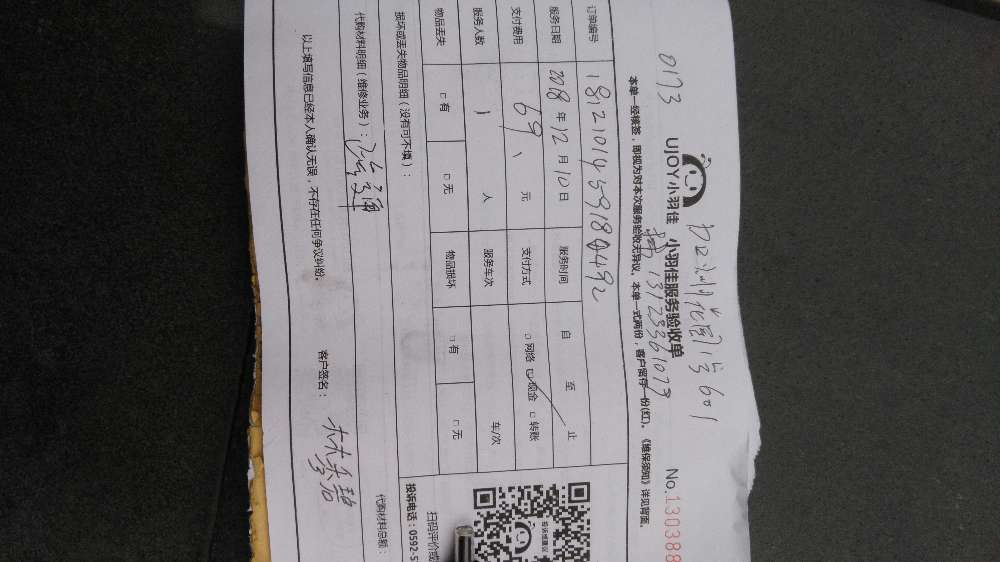 601
0173
UJOY小羽佳 小羽佳服务验收单
No.130388
13123361073
本单一经核签，即视为对本次服务验收无异议。本单一式两份，客户留存一份(红)。《维保须知》详见背面。
订单编号
服务日期 2018 年 12 月 10 日 服务时间 自 至 止
支付费用 69 元 支付方式 □ 网络 ☑ 现金 □ 转账
服务人数 1 人 服务车次 车/次
物品丢失 □ 有 □ 无 物品损坏 □ 有 □ 无
损坏或丢失物品明细（没有可不填）：
代购材料明细（维修业务）：
代购材料总额：
以上填写信息已经本人确认无误，不存在任何争议纠纷。 客户签名：
投诉维建议
扫码评价或
投诉电话：0592-5